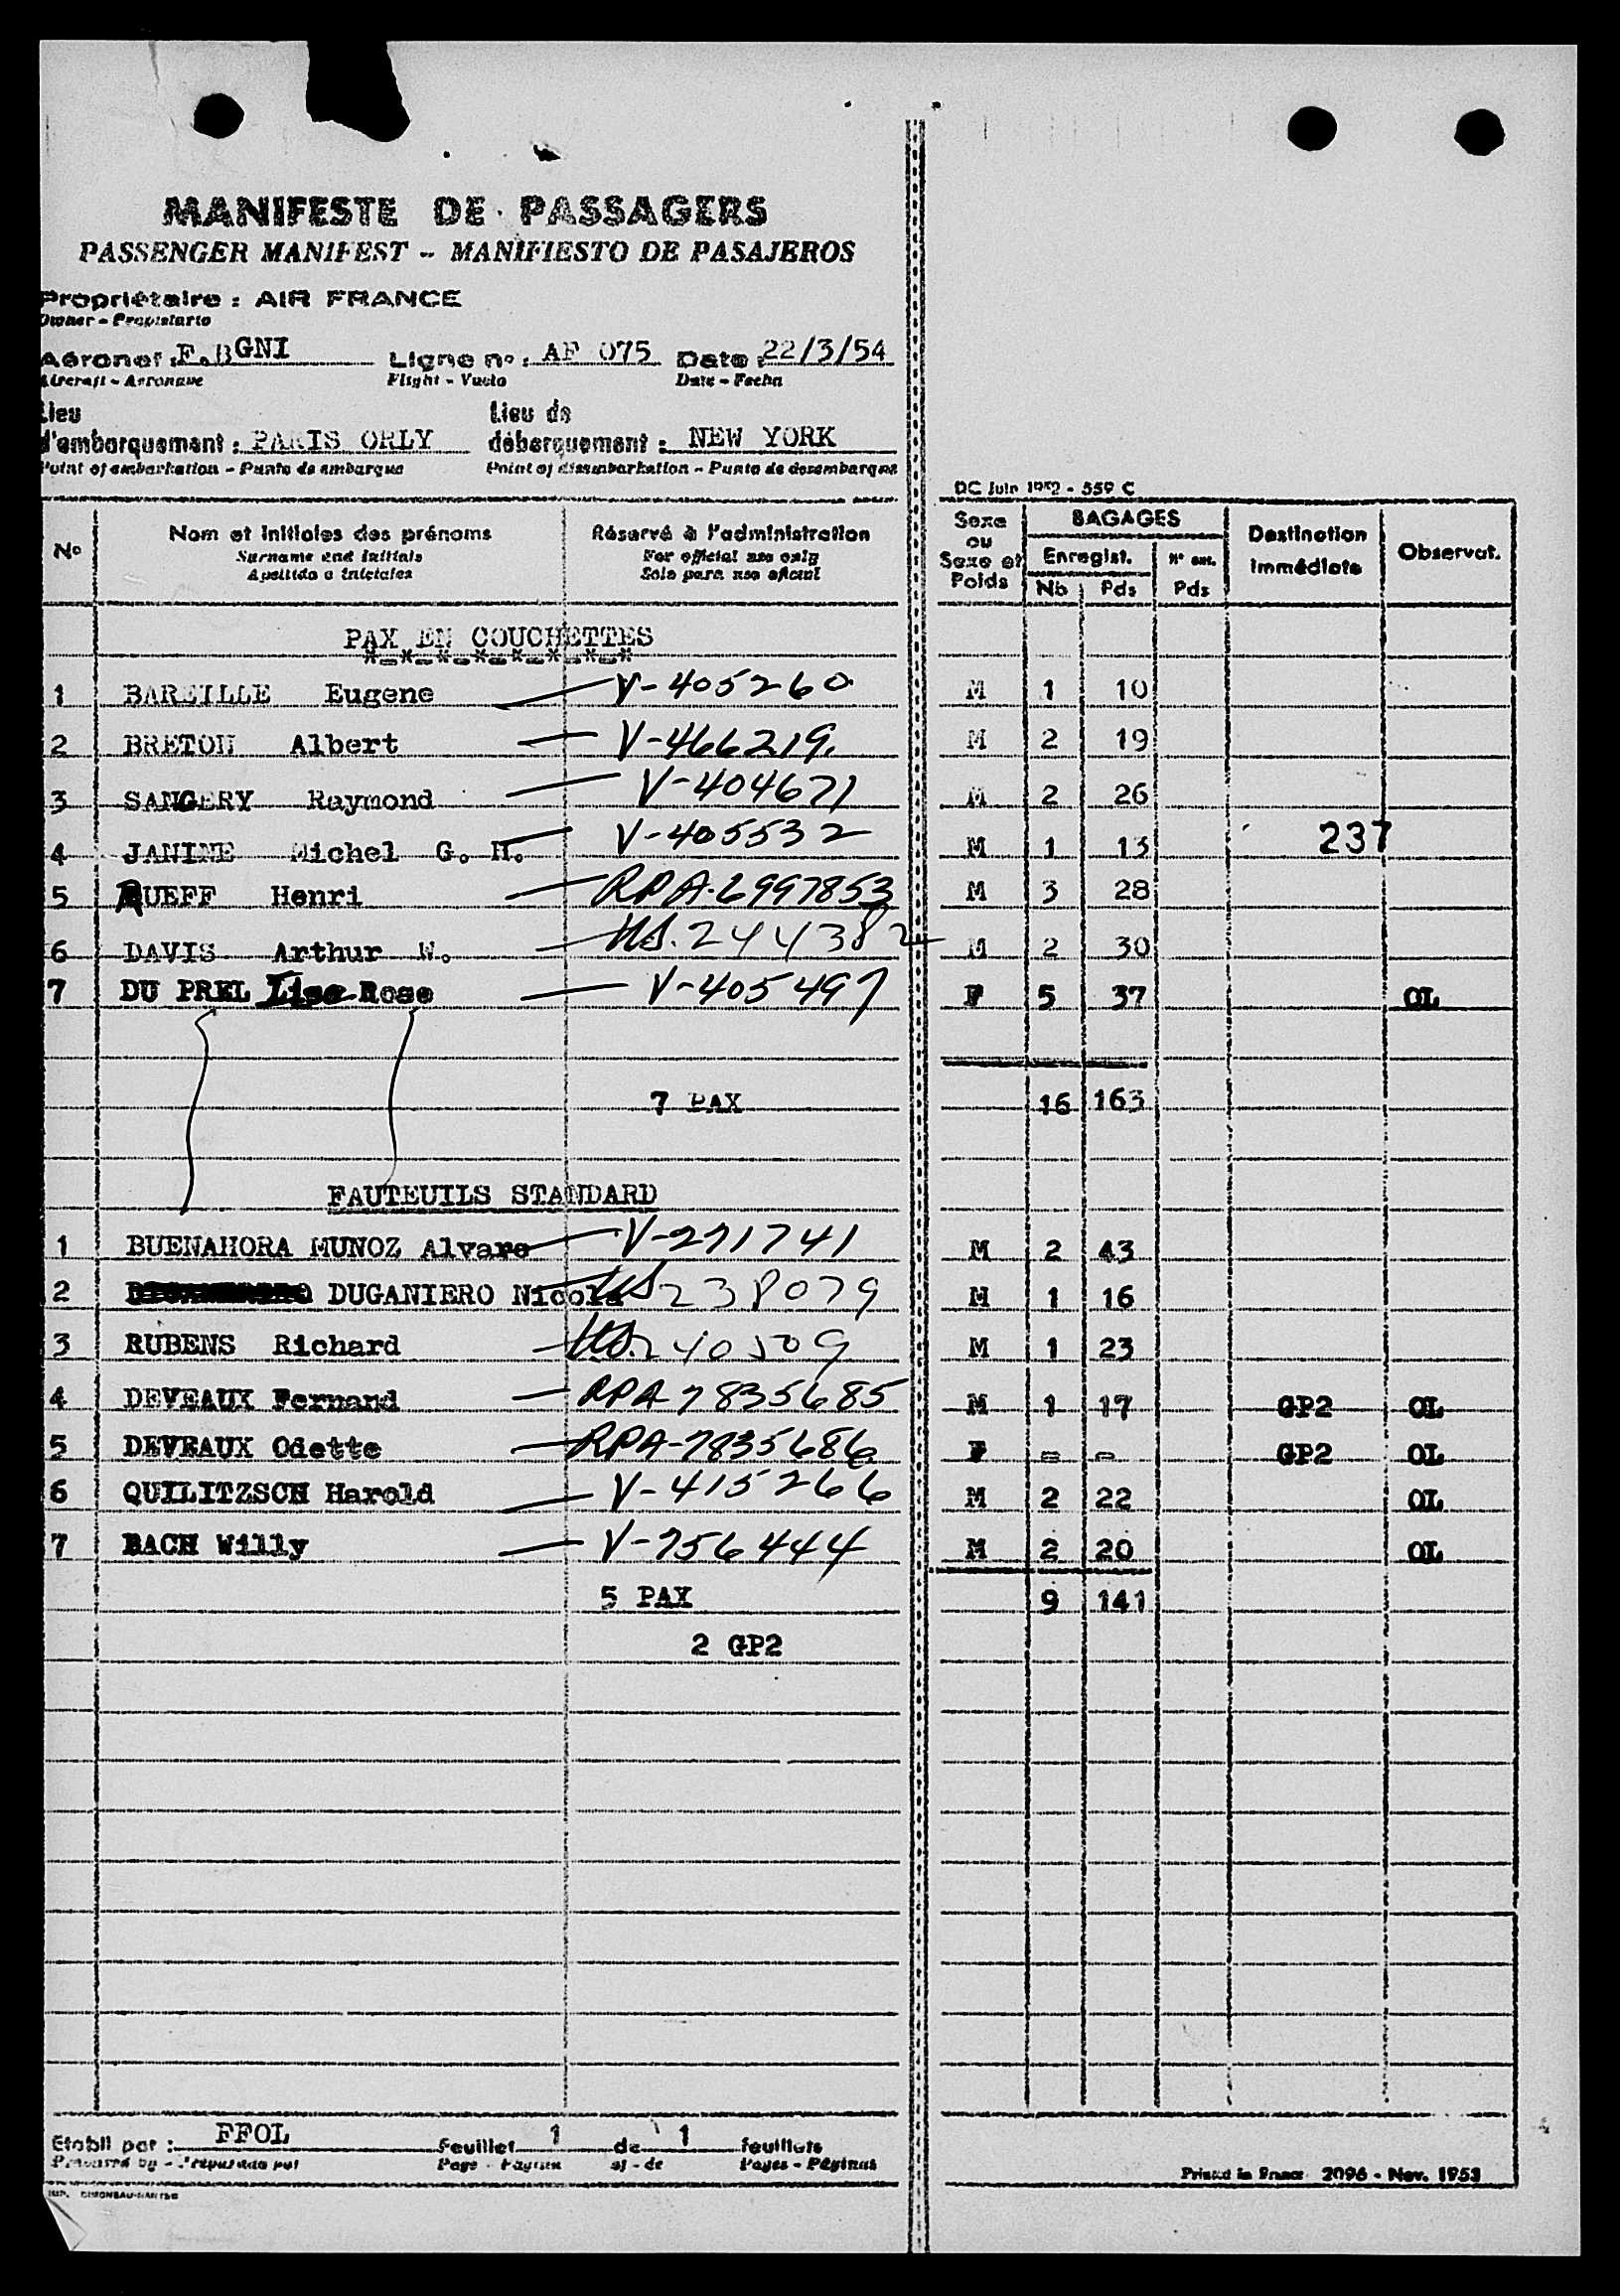 MANIFESTE DE PASSAGERS
PASSENGER MANIFEST - MANIFIESTO DE PASAJEROS
Propriétaire : AIR FRANCE
Owner - Propietario
Aéronef : F.BGNI Ligne n° : AF 075 Date : 22/3/54
Aircraft - Aeronave Flight - Vuelo Date - Fecha
Lieu d'embarquement : PARIS ORLY Lieu de débarquement : NEW YORK
Point of embarkation - Punto de embarque Point of disembarkation - Punto de desembarque
DC Juin 1952 - 559 C
N° Nom et initiales des prénoms Réservé à l'administration Sexe ou Sexe et Poids BAGAGES Destination immédiate Observat.
Surname and initials For official use only Enregist.
Apellido e iniciales Solo para uso oficial Nb Pds Pds
PAX EN COUCHETTES
*-*-*-*-*-*-*-*
1 BAREILLE Eugene V-405260 M 1 10
2 BRETON Albert V-466219. M 2 19
3 SANGERY Raymond V-404671 M 2 26
4 JANINE Michel G. H. V-405532 M 1 13 237
5 RUEFF Henri RPA-6997853 M 3 28
6 DAVIS Arthur W. US.244382 M 2 30
7 DU PREL Lise Rose V-405497 F 5 37 OL
7 PAX 16 163
FAUTEUILS STANDARD
1 BUENAHORA MUNOZ Alvaro V-271741 M 2 43
2 DUGANIERO Nicola US 238079 M 1 16
3 RUBENS Richard US.240509 M 1 23
4 DEVEAUX Fernand RPA 7835685 M 1 17 GP2 OL
5 DEVEAUX Odette RPA-7835686 F = - GP2 OL
6 QUILITZSCH Harold V-415266 M 2 22 OL
7 BACH Willy V-756444 M 2 20 OL
5 PAX 9 141
2 GP2
Etabli par : FFOL Feuillet 1 de 1 feuillets
Prepared by - Preparado por Page - Página of - de Pages - Páginas
Printed in France 2096 - Nov. 1953